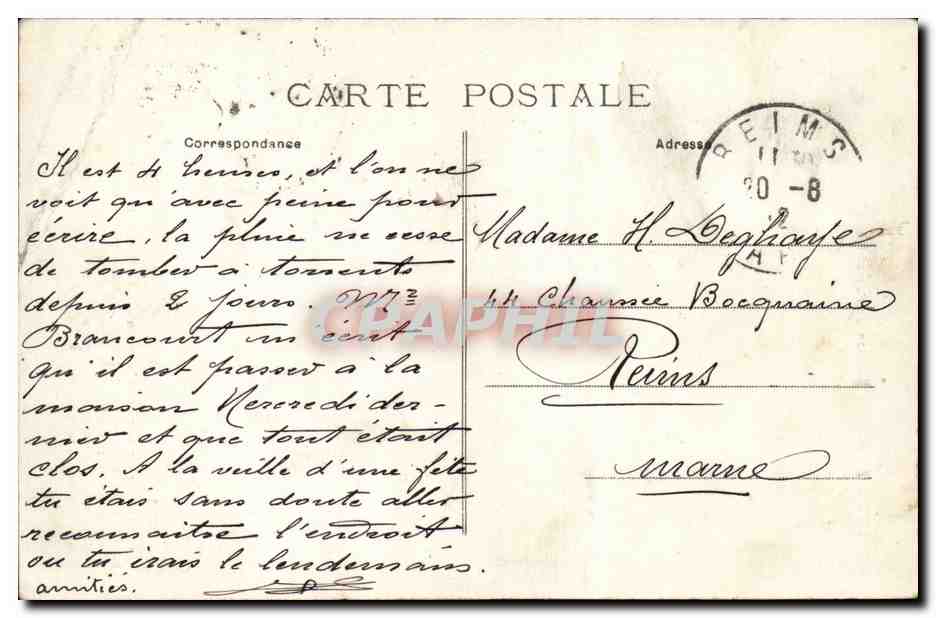 CARTE POSTALE
Correspondance
Il est 4 heures, et l'on ne
voit qu'avec peine pour
écrire, la pluie ne cesse
de tomber à torrents
depuis 2 jours. Mr
Brancourt m'écrit
qu'il est passer à la
maison Mercredi der-
nier et que tout était
clos. A la veille d'une fête
tu étais sans doute aller
reconnaitre l'endroit
ou tu irais le lendemain.
amitiés.
Adresse
REIMS
20 -8
Madame H.
44 Chaussée Bocquaine
Reims
Marne
CHAPHIL